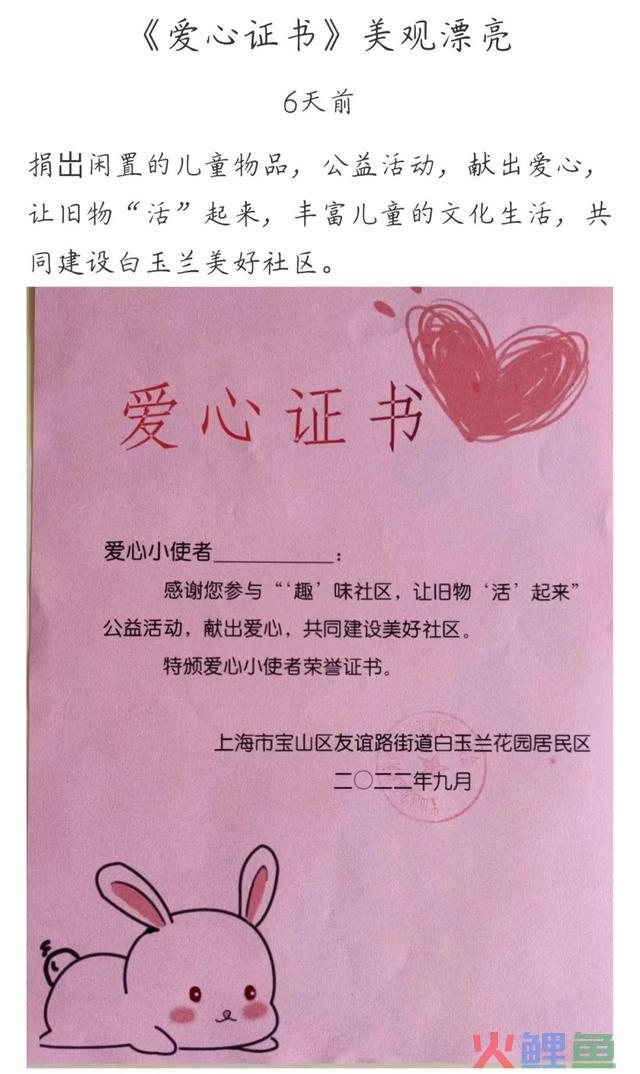 《爱心证书》美观漂亮
6天前
捐出闲置的儿童物品，公益活动，献出爱心，
让旧物“活”起来，丰富儿童的文化生活，共
同建设白玉兰美好社区。
爱心证书
爱心小使者__________：
感谢您参与“‘趣’味社区，让旧物‘活’起来”
公益活动，献出爱心，共同建设美好社区。
特颁爱心小使者荣誉证书。
上海市宝山区友谊路街道白玉兰花园居民区
二〇二二年九月
火鲤鱼